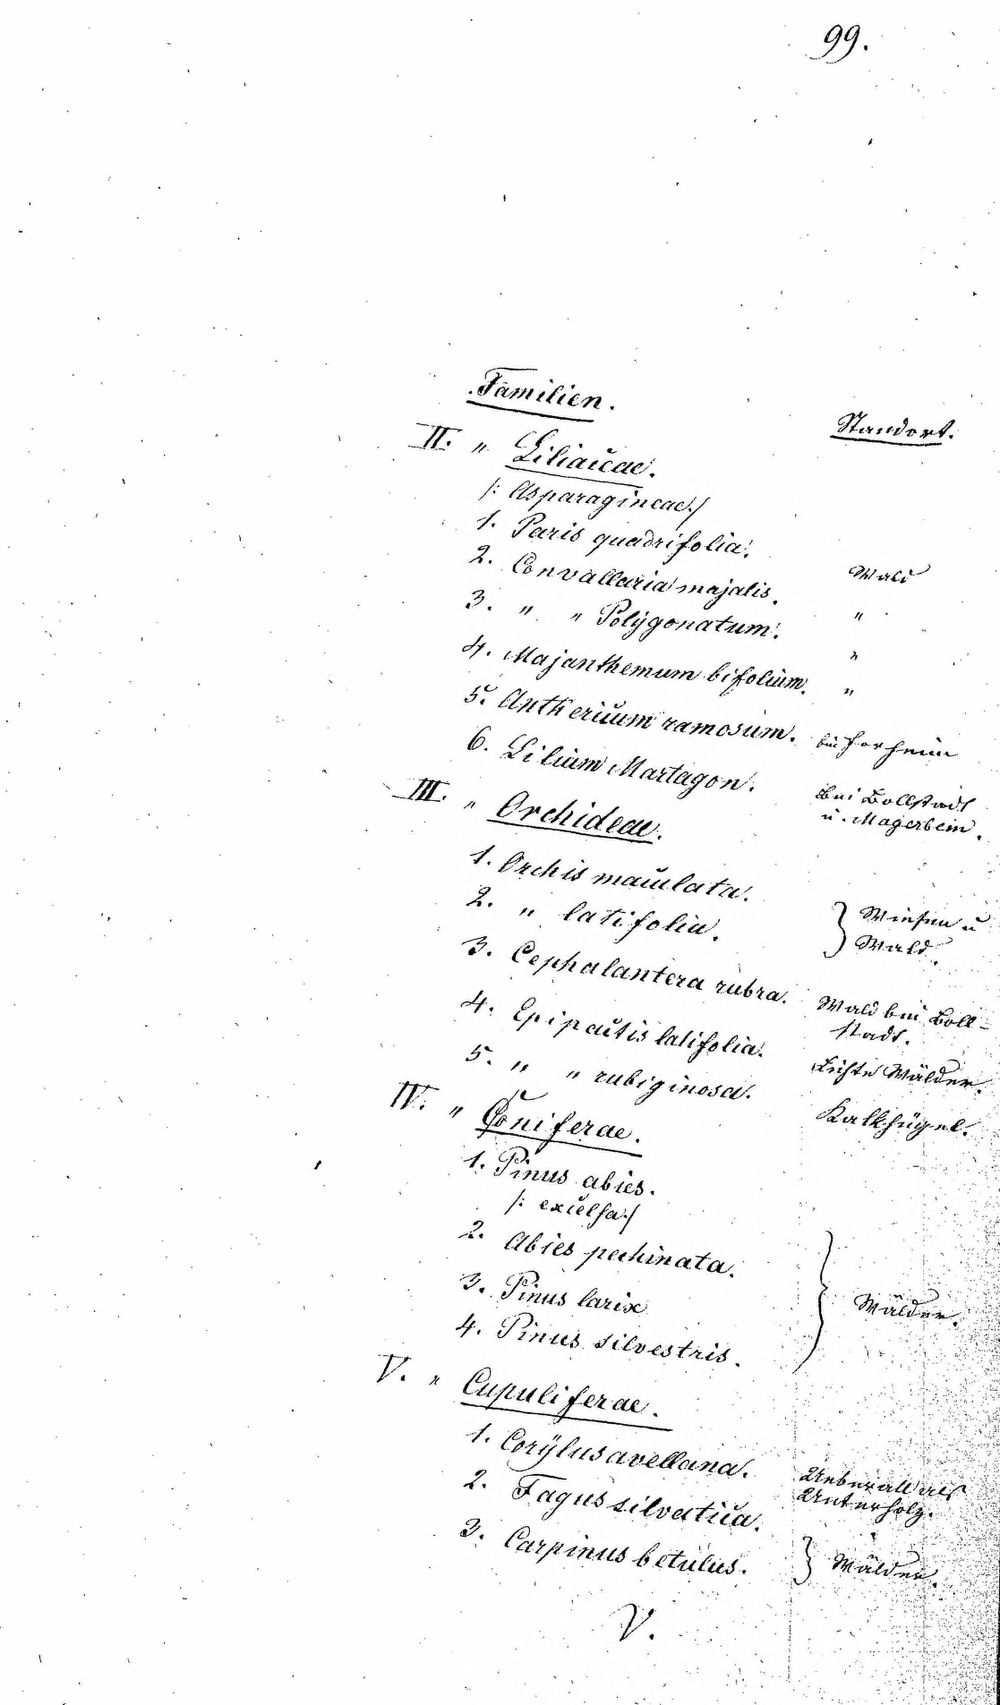 99.
Familien.
Standort.
II. " Liliacae.
/: Asparagineae:/
1. Paris quadrifolia. Wald
2. Convallaria majalis. "
3. " " Polÿgonatum. "
4. Majanthemum bifolium. "
5. Anthericum ramosum. bei Forheim
6. Lilium Martagon. Bei Bollstadt
u. Magerbein.
III. " Orchideae.
1. Orchis maculata.
2. " latifolia. } Wiesen u
Wald.
3. Cephalantera rubra. Wald bei Boll-
stadt.
4. Epipactis latifolia. Lichte Wälder.
5. " " rubiginosa. Kalkhügel.
IV. " Coniferae.
1. Pinus abies.
/: excelsa:/
2. Abies pechinata.
3. Pinus larix } Wälder.
4. Pinus silvestris.
V. " Cupuliferae.
1. Corÿlus avellana. Ueberall als
Unterholz.
2. Fagus silvatica.
3. Carpinus betulus. } Wälder.
V.